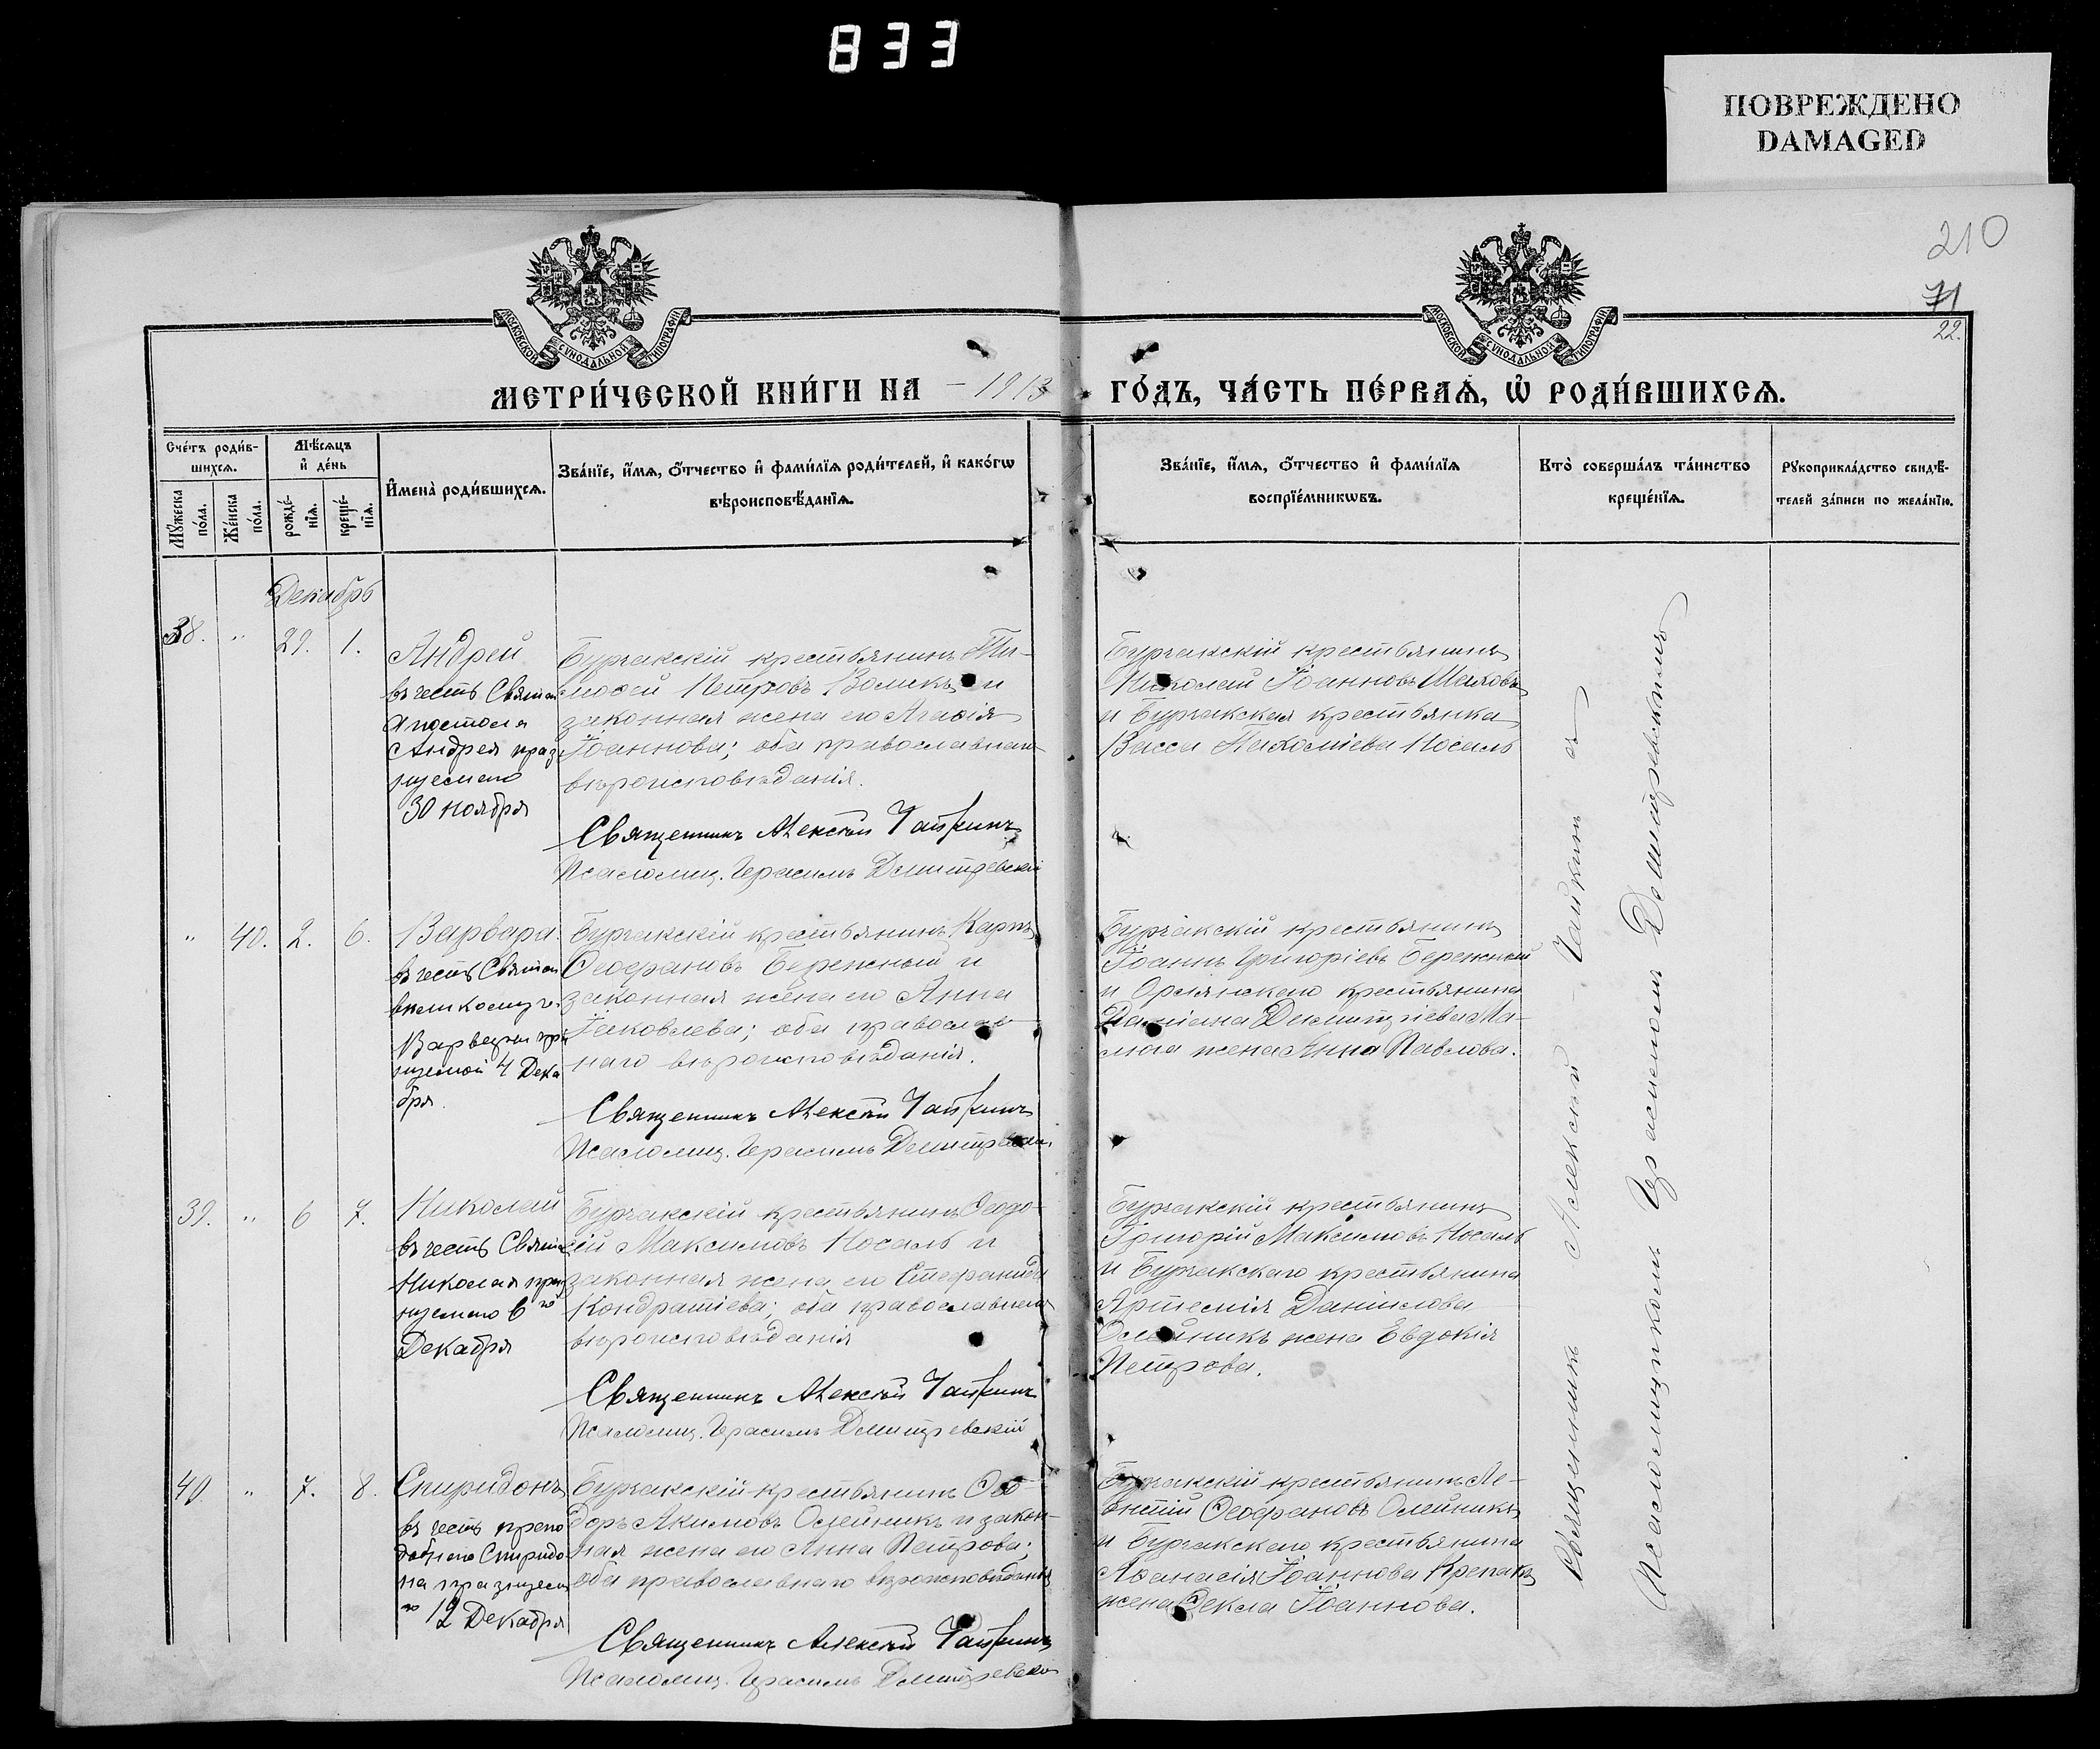 833
ПОВРЕЖДЕНО
DAMAGED
210
71
22.
МОСКОВСКОЙ СѴНОДАЛЬНОЙ ТИПОГРАФІИ
МОСКОВСКОЙ СѴНОДАЛЬНОЙ ТИПОГРАФІИ
МЕТРИ́ЧЕСКОЙ КНИ́ГИ НА – 1913 ГО́ДЪ, ЧА́СТЬ ПЕ́РВАѦ, Ѽ РОДИ́ВШИХСѦ.
Сче́тъ роди́в-
шихсѧ.
Мꙋ́жеска
по́ла.
Же́нска
по́ла.
Мѣ́сѧцъ
и҆ де́нь
рожде́-
нїѧ.
креще́-
нїѧ.
И҆мена̀ роди́вшихсѧ.
Зва́нїе, и҆́мѧ, ѻ҆́тчество и҆ фами́лїѧ роди́телей, и҆ како́гѡ
вѣроисповѣ́данїѧ.
Зва́нїе, и҆́мѧ, ѻ҆́тчество и҆ фами́лїѧ
воспрїе́мникѡвъ.
Кто̀ соверша́лъ та́инство
креще́нїѧ.
Рꙋкоприкла́дство свидѣ́-
телей за́писи по жела́нїю.
Декабрь
38. " 29. 1.
Андрей
въ честь Святаго
Апостола
Андрея праз
нуемаго
30 ноября
Бурчакскій крестьянинъ Ти-
моѳей Петровъ Воликъ и
законная жена его Агаѳія
Іоаннова; оба православнаго
вѣроисповѣданія.
Священникъ Алексѣй Чайкинъ
Псаломщ. Герасимъ Демитревскій
Бурчакскій крестьянинъ
Николай Іоанновъ
и Бурчакская крестьянка
Васса Носаль
" 40. 2. 6.
Варвара
въ честь Святой
великомуч.
Варвары пра
нуемой 4 Дека
бря
Бурчакскій крестьянинъ Карпъ
Ѳеофановъ Бережный и
законная жена его Анна
Іаковлева; оба православ-
наго вѣроисповѣданія.
Священникъ Алексѣй Чайкинъ
Псаломщ. Герасимъ Демитревскій
Бурчакскій крестьянинъ
Іоаннъ Григоріевъ Бережный
и крестьянина
Даміана Димитріева
жена Анна Павлова.
39. " 6 7.
Николай
въ честь Святаго
Николая праз
нуемаго 6го
Декабря
Бурчакскій крестьянинъ Ѳеодо-
сій Максимовъ Носаль и
законная жена его Стефанида
Кондратіева; оба православнаго
вѣроисповѣданія
Священникъ Алексѣй Чайкинъ
Псаломщ. Герасимъ Демитревскій
Бурчакскій крестьянинъ
Григорій Максимовъ Носаль
и Бурчакскаго крестьянина
Артемія Даніилова
Олейникъ жена Евдокія
Петрова.
40 " 7. 8.
Спиридонъ
въ честь препо
добнаго Спиридо
на празднуема
го 12 Декабря
Бурчакскій крестьянинъ Ѳео-
доръ Акимовъ Олейникъ и закон-
ная жена его Анна Петрова;
оба православнаго вѣроисповѣданія
Священникъ Алексѣй Чайкинъ
Псаломщ. Герасимъ Демитревскій
Бурчакскій крестьянинъ Ле-
онтій Ѳеофановъ Олейникъ
и Бурчакскаго крестьянина
Аѳанасія Іоаннова Крепакъ
жена Ѳекла Іоаннова.
Священникъ Алексѣй Чайкинъ съ
Псаломщикомъ Герасимомъ Демитревскимъ